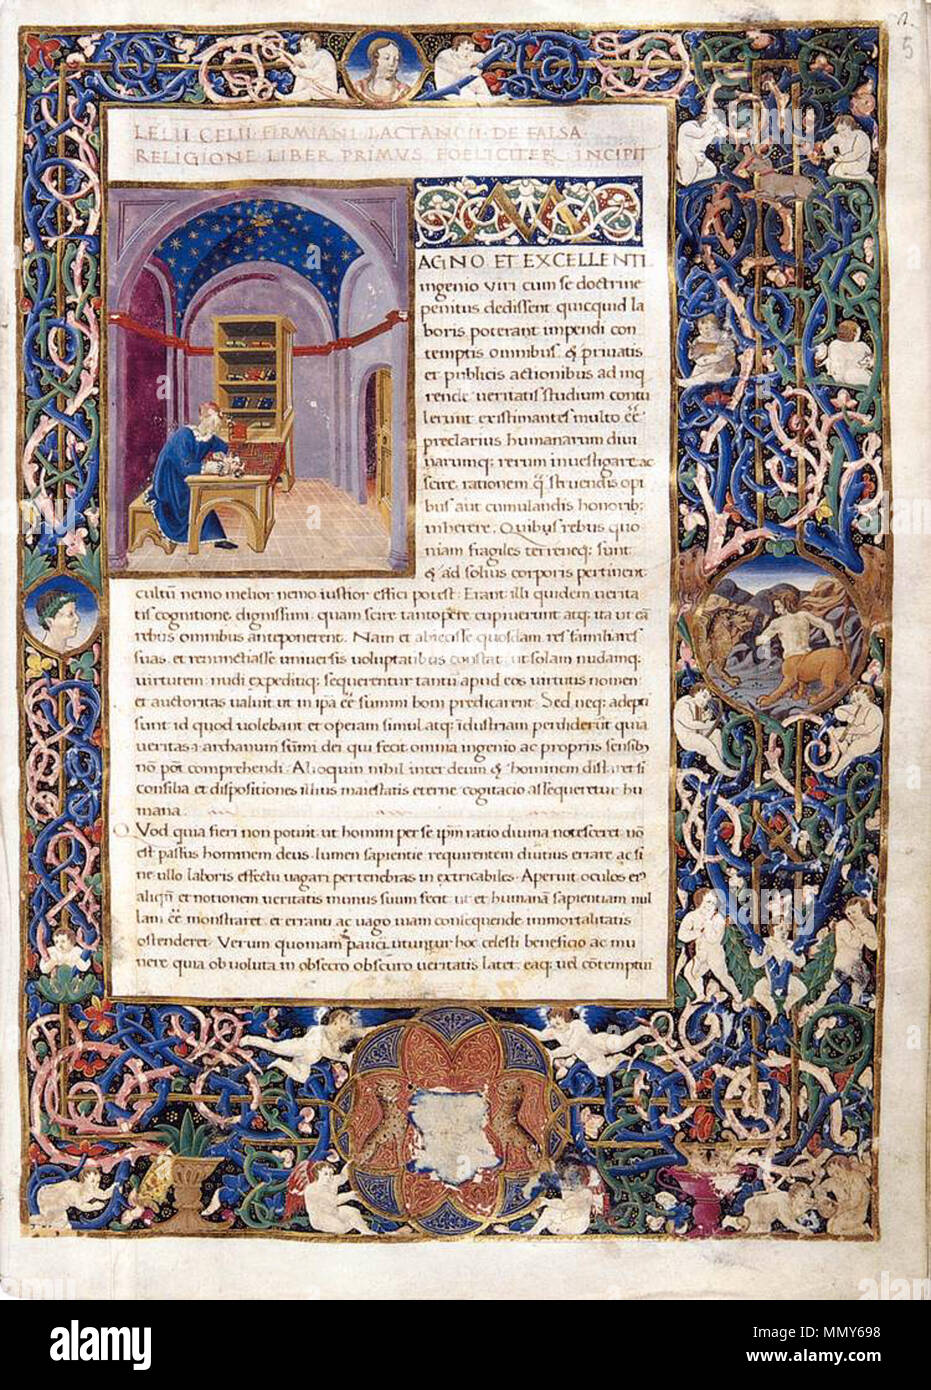 5
LELII CELII FIRMIANI LACTANCII DE FALSA
RELIGIONE LIBER PRIMVS FOELICITER INCIPIT
M
AGNO ET EXCELLENTI
ingenio viri cum se doctrine
penitus dedissent quicquid la
boris poterant impendi con
temptis omnibus & privatis
et publicis actionibus ad inq
rende veritatis studium contu
lerunt existimantes multo eē
preclarius humanarum divi
narumq; rerum investigare ac
scire rationem q̄ struendis opi
bus aut cumulandis honorib;
inherere. Quibus rebus quo
niam fragiles terreneq; sunt
& ad solius corporis pertinent
cultū nemo melior nemo iustior effici potest. Erant illi quidem verita
tis cognitione dignissimi quam scire tantopere cupiverunt atq; ita ut eā
rebus omnibus anteponerent. Nam et abiecisse quosdam res familiares
suas et renunctiasse universis voluptatibus constat ut solam nudamq;
virtutem nudi expeditiq; sequerentur tantū apud eos virtutis nomen
et auctoritas valuit ut in ipā eē summi boni predicarent Sed neq; adepti
sunt id quod volebant et operam simul atq; īdustriam perdiderūt quia
veritas .i. archanum sūmi dei qui fecit omnia ingenio ac propriis sensib;
nō pōt comprehendi. Alioquin nihil inter deum & hominem distaret si
consilia et dispositiones illius maiestatis eterne cogitacio assequeretur hu
mana.
Qvod quia fieri non potuit ut homini per se ipm̄ ratio divina notesceret nō
est passus hominem deus lumen sapientie requirentem diutius errare ac si
ne ullo laboris effectu vagari per tenebras inextricabiles. Aperuit oculos ei
aliqn̄ et notionem veritatis munus suum fecit ut et humanā sapientiam nul
lam eē monstraret et erranti ac vago viam consequende immortalitatis
ostenderet. Verum quoniam pauci utuntur hoc celesti beneficio ac mu
nere quia obvoluta in obscuro veritas latet eaq; vel cōtemptui
alamy
alamy
Image ID: MMY698
www.alamy.com